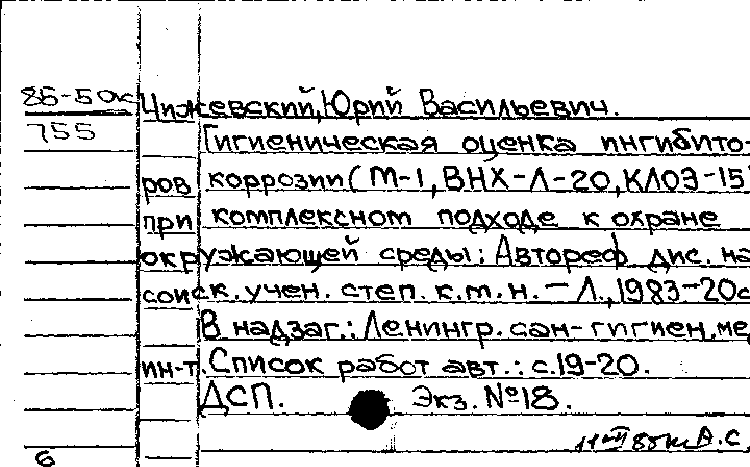 85-50к Чижевский, Юрий Васильевич.
755 Гигиеническая оценка ингибито-
ров коррозии (М-1, ВНХ-Л-20, КЛОЭ-15)
при комплексном подходе к охране
окружающей среды: Автореф. дис. на
соиск. учен. степ. к.м.н. - Л., 1983-20с
В надзаг.: Ленингр. сан-гигиен. ме
ин-т. Список работ авт.: с.19-20.
ДСП. Экз. №18.
А.С.
6